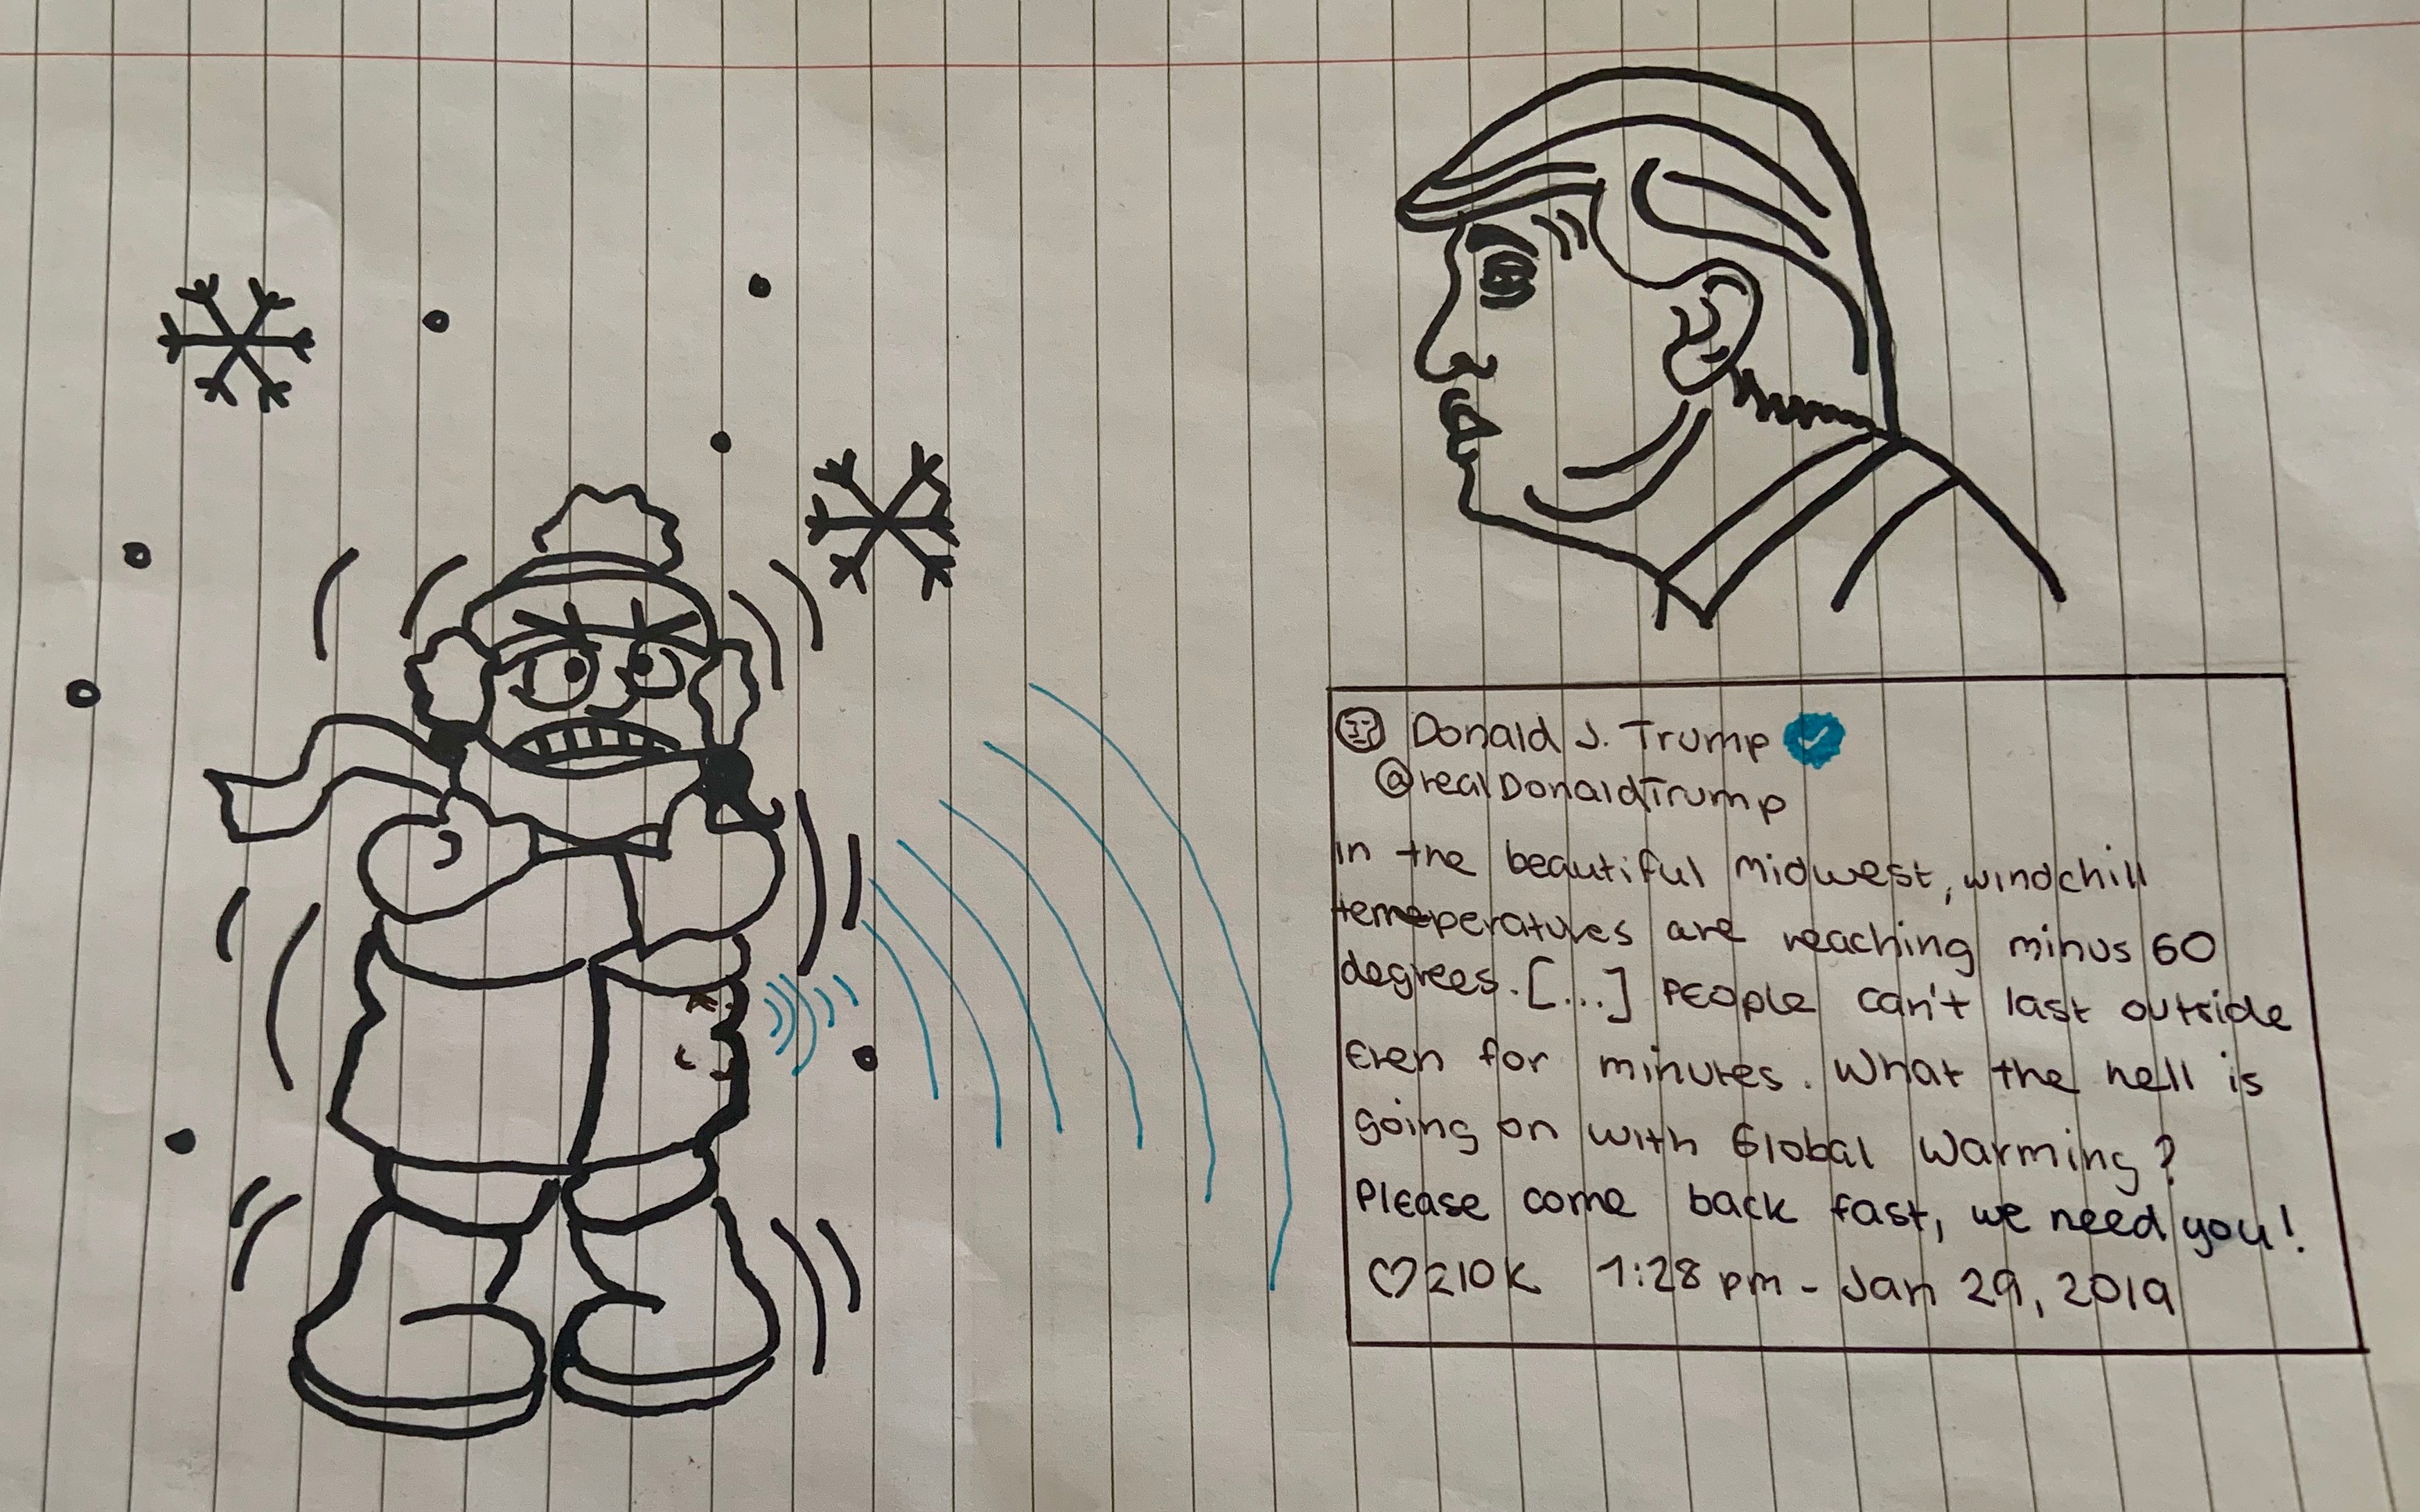 Donald J. Trump
@realDonaldTrump
in the beautiful Midwest, windchill
temeperatures are reaching minus 60
degrees. [...] PEOple can't last outside
Even for minutes. What the hell is
going on with Global Warming?
Please come back fast, we need you!
♡210K 1:28 pm - Jan 29, 2019